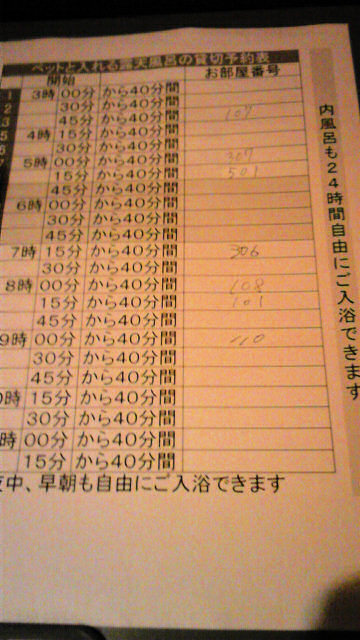 ペットと入れる露天風呂の貸切予約表
開始 お部屋番号
1 3時 00分 から40分間
2 30分 から40分間 107
3 45分 から40分間
5 4時 15分 から40分間
6 30分 から40分間
7 5時 00分 から40分間 307
15分 から40分間 501
45分 から40分間
6時 00分 から40分間
30分 から40分間
45分 から40分間
7時 15分 から40分間 306
30分 から40分間
8時 00分 から40分間 108
15分 から40分間 101
45分 から40分間
9時 00分 から40分間 110
30分 から40分間
45分 から40分間
0時 15分 から40分間
30分 から40分間
時 00分 から40分間
15分 から40分間
夜中、早朝も自由にご入浴できます
内風呂も24時間自由にご入浴できます